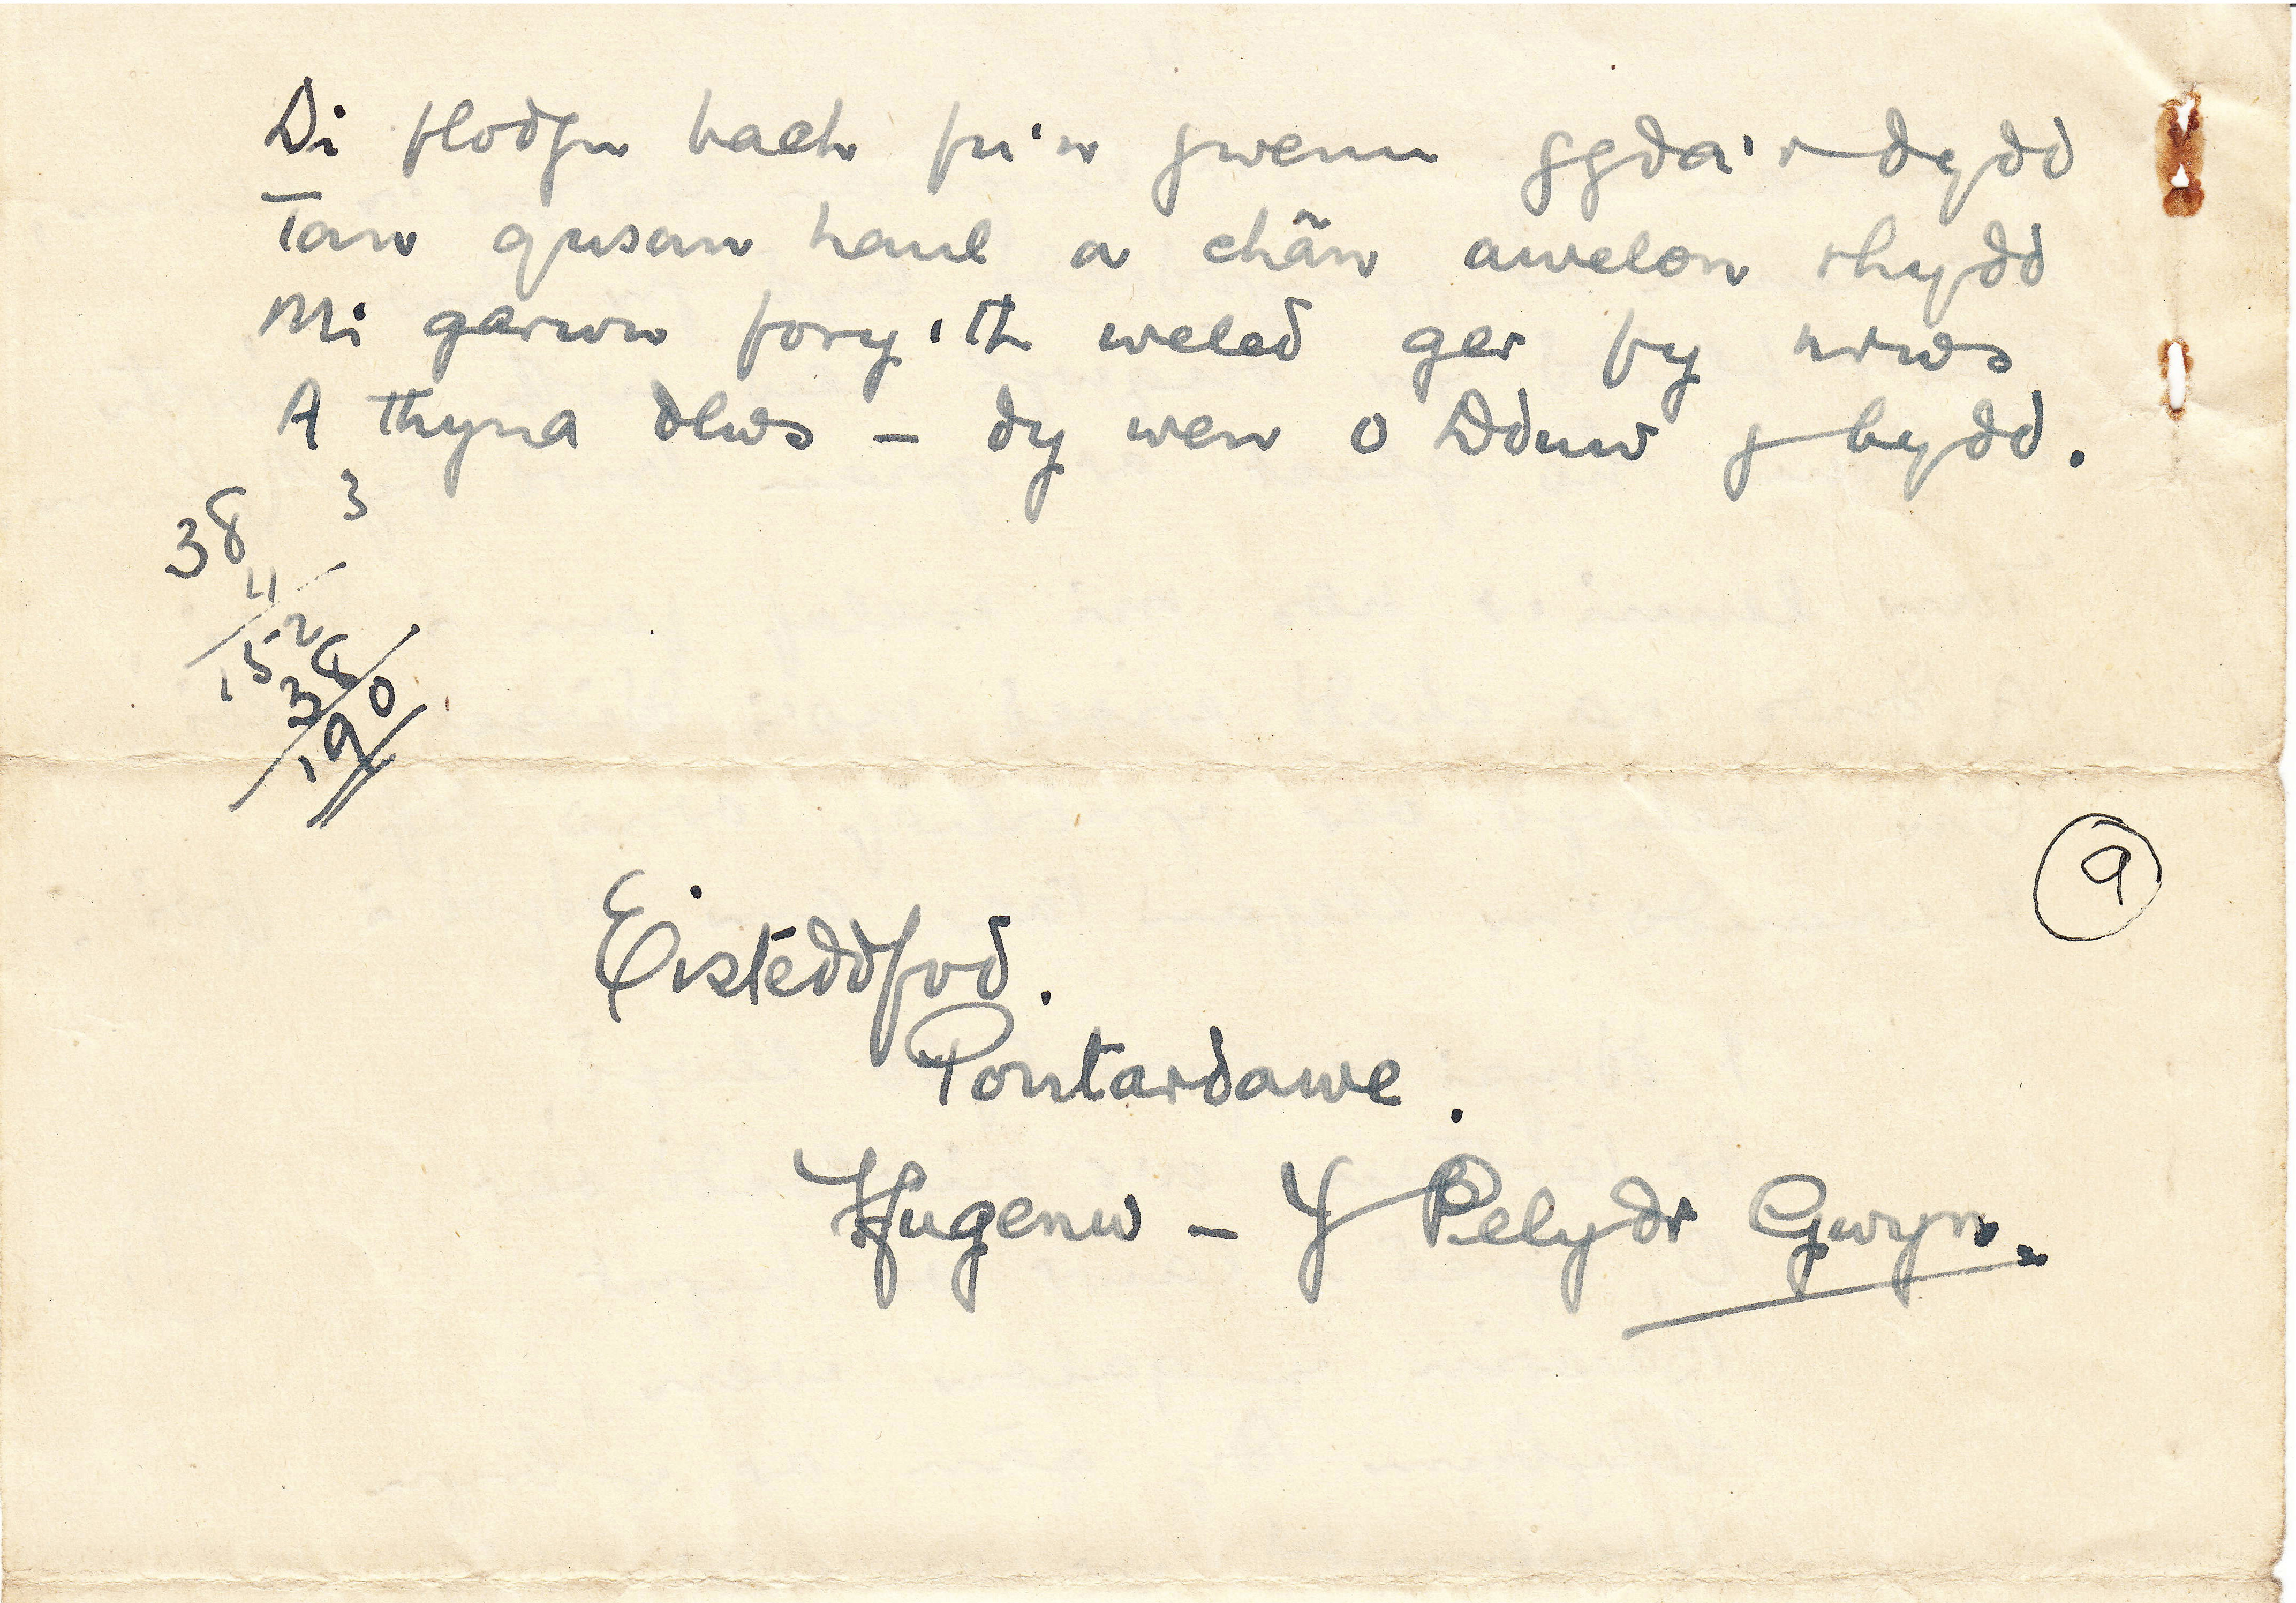 Di flodyn bach fu'n gwenu gyda'r dydd
Tan gusan haul a chân awelon rhydd
Mi garwn fory'th weled ger fy nrws
A thyna dlws – dy wên o Dduw y bydd.
3
38
11
152
38
190
9
Eisteddfod.
Pontardawe.
Ffugenw – Y Pelydr Gwyn.